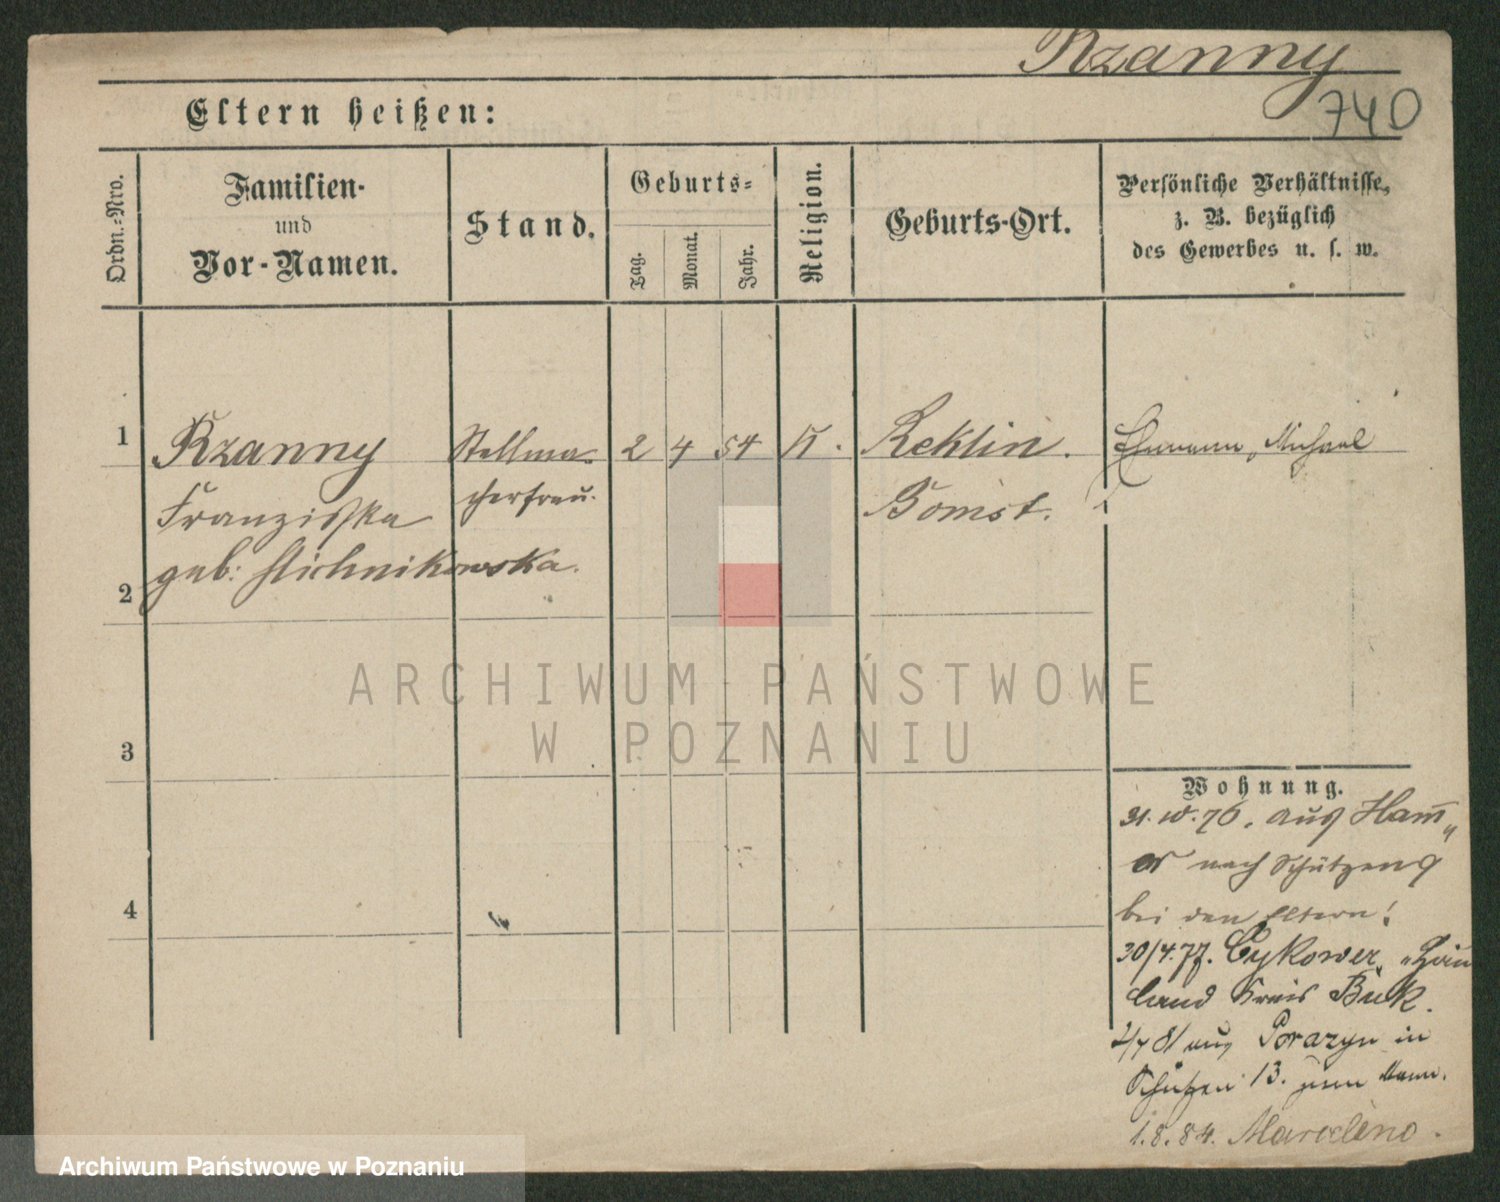 Rzanny
740
Eltern heißen:
Ordn.-Nro.
Familien-
und
Vor-Namen.
Stand.
Geburts-
Tag.
Monat.
Jahr.
Religion.
Geburts-Ort.
Persönliche Verhältnisse,
z. B. bezüglich
des Gewerbes u. s. w.
1
Rzanny
Franziska
geb:
Stellma-
cherfrau.
2 4 54 K.
Reklin.
Bomst.
Ehemann, Michael
2
3
4
ARCHIWUM PAŃSTWOWE
W POZNANIU
Wohnung.
aus
nach Schützeng
bei den Eltern!
30/4.77. Cykower "Hau
land Kreis Buk.
81 aus Porazyn in
Schützen 13. zum Mann.
1.8.84. Marcelino.
Archiwum Państwowe w Poznaniu